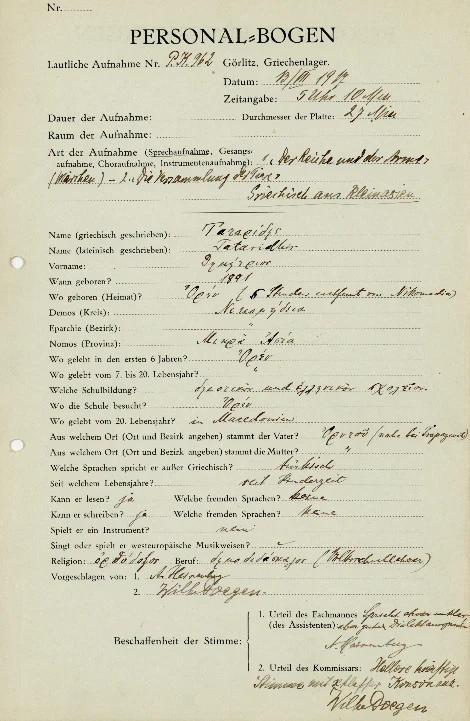 Nr.
PERSONAL-BOGEN
Lautliche Aufnahme Nr. P.K. 962 Görlitz, Griechenlager.
Datum: 1917
Zeitangabe: 5 Uhr 10 Min
Dauer der Aufnahme: Durchmesser der Platte: 27
Raum der Aufnahme:
Art der Aufnahme (Sprechaufnahme, Gesangs-
aufnahme, Choraufnahme, Instrumentenaufnahme): 1. Der Reiche und der Arme
(Märchen) – 2. Die Versammlung der
Griechisch aus Kleinasien
Name (griechisch geschrieben): Ταταρίδης
Name (lateinisch geschrieben): Tataridhis
Vorname: Δημήτριος
Wann geboren? 1891
Wo geboren (Heimat)? (6 Stunden entfernt von Nikomedia)
Demos (Kreis): Νικομήδεια
Eparchie (Bezirk): "
Nomos (Provinz): Μικρά Ἀσία
Wo gelebt in den ersten 6 Jahren?
Wo gelebt vom 7. bis 20. Lebensjahr? "
Welche Schulbildung? δημοτικόν und ἑλληνικόν σχολεῖον
Wo die Schule besucht?
Wo gelebt vom 20. Lebensjahr? in Macedonien
Aus welchem Ort (Ort und Bezirk angeben) stammt der Vater? (nahe bei Trapezunt)
Aus welchem Ort (Ort und Bezirk angeben) stammt die Mutter? "
Welche Sprachen spricht er außer Griechisch? türkisch
Seit welchem Lebensjahre? seit Kinderzeit
Kann er lesen? ja Welche fremden Sprachen? keine
Kann er schreiben? ja Welche fremden Sprachen? keine
Spielt er ein Instrument? nein
Singt oder spielt er westeuropäische Musikweisen? –
Religion: ὀρθόδοξος Beruf: δημοδιδάσκαλος (Volksschullehrer)
Vorgeschlagen von: 1. A. Heisenberg
2. Wilh. Doegen.
1. Urteil des Fachmannes
(des Assistenten) aber guter Dialekt
A. Heisenberg
Beschaffenheit der Stimme:
2. Urteil des Kommissars: Hellere kräftige
Stimme mit Konsonanz.
Wilh. Doegen